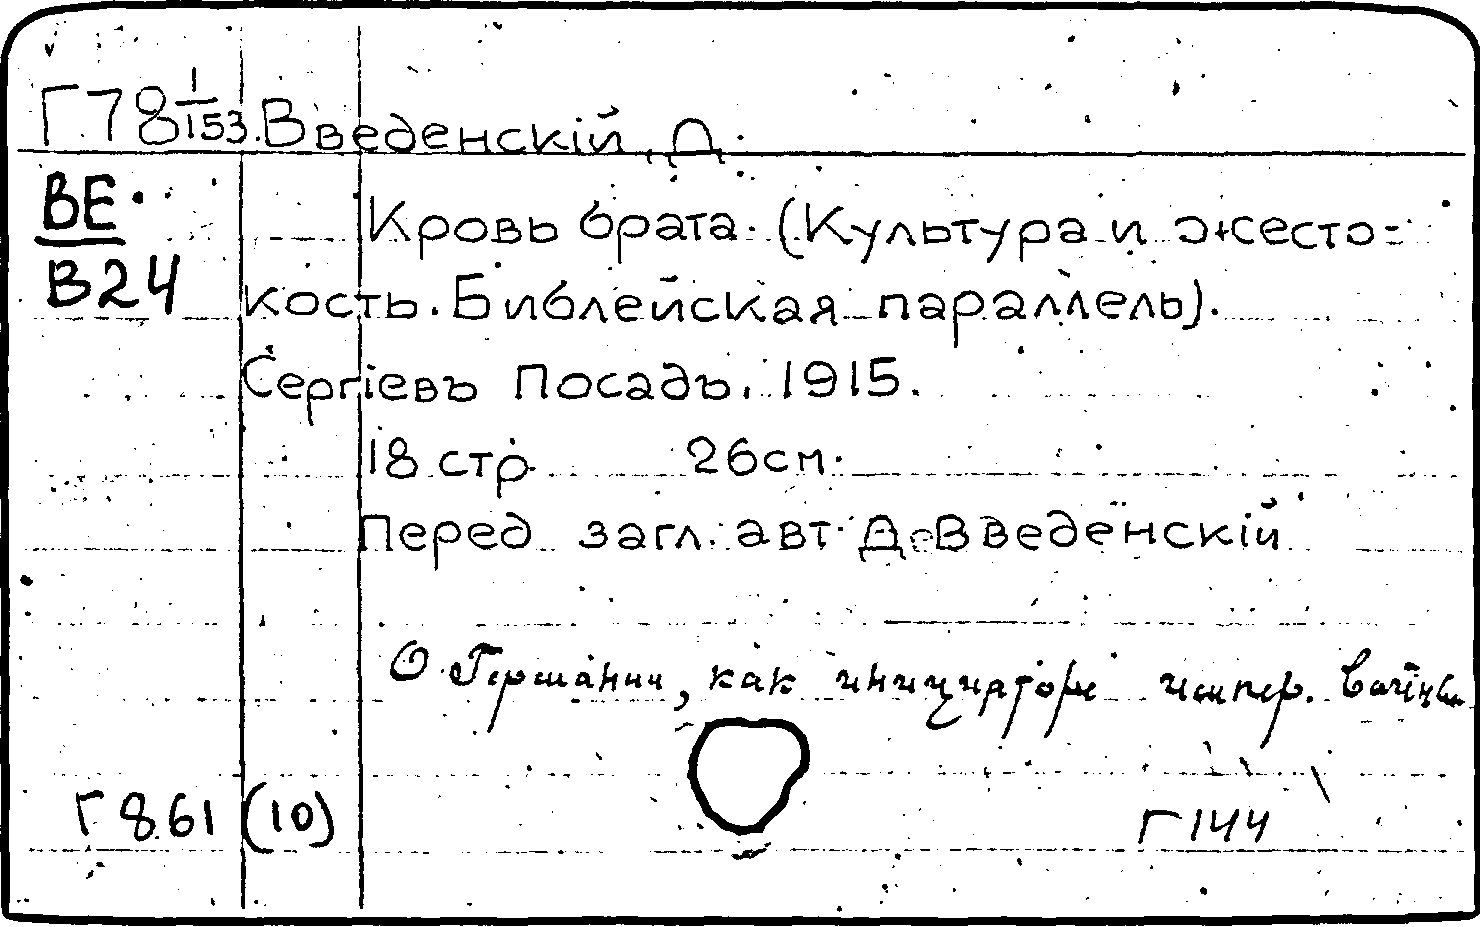 Г78 1/153. Введенскій, Д.
ВЕ
В24
Кровь брата. (Культура и жесто-
кость. Библейская параллель).
Сергіевъ Посадъ, 1915.
18 стр 26см.
Перед загл. авт. Д. Введенскій
О Германии, как инициаторе импер. войны
Г 861 (10)
Г144